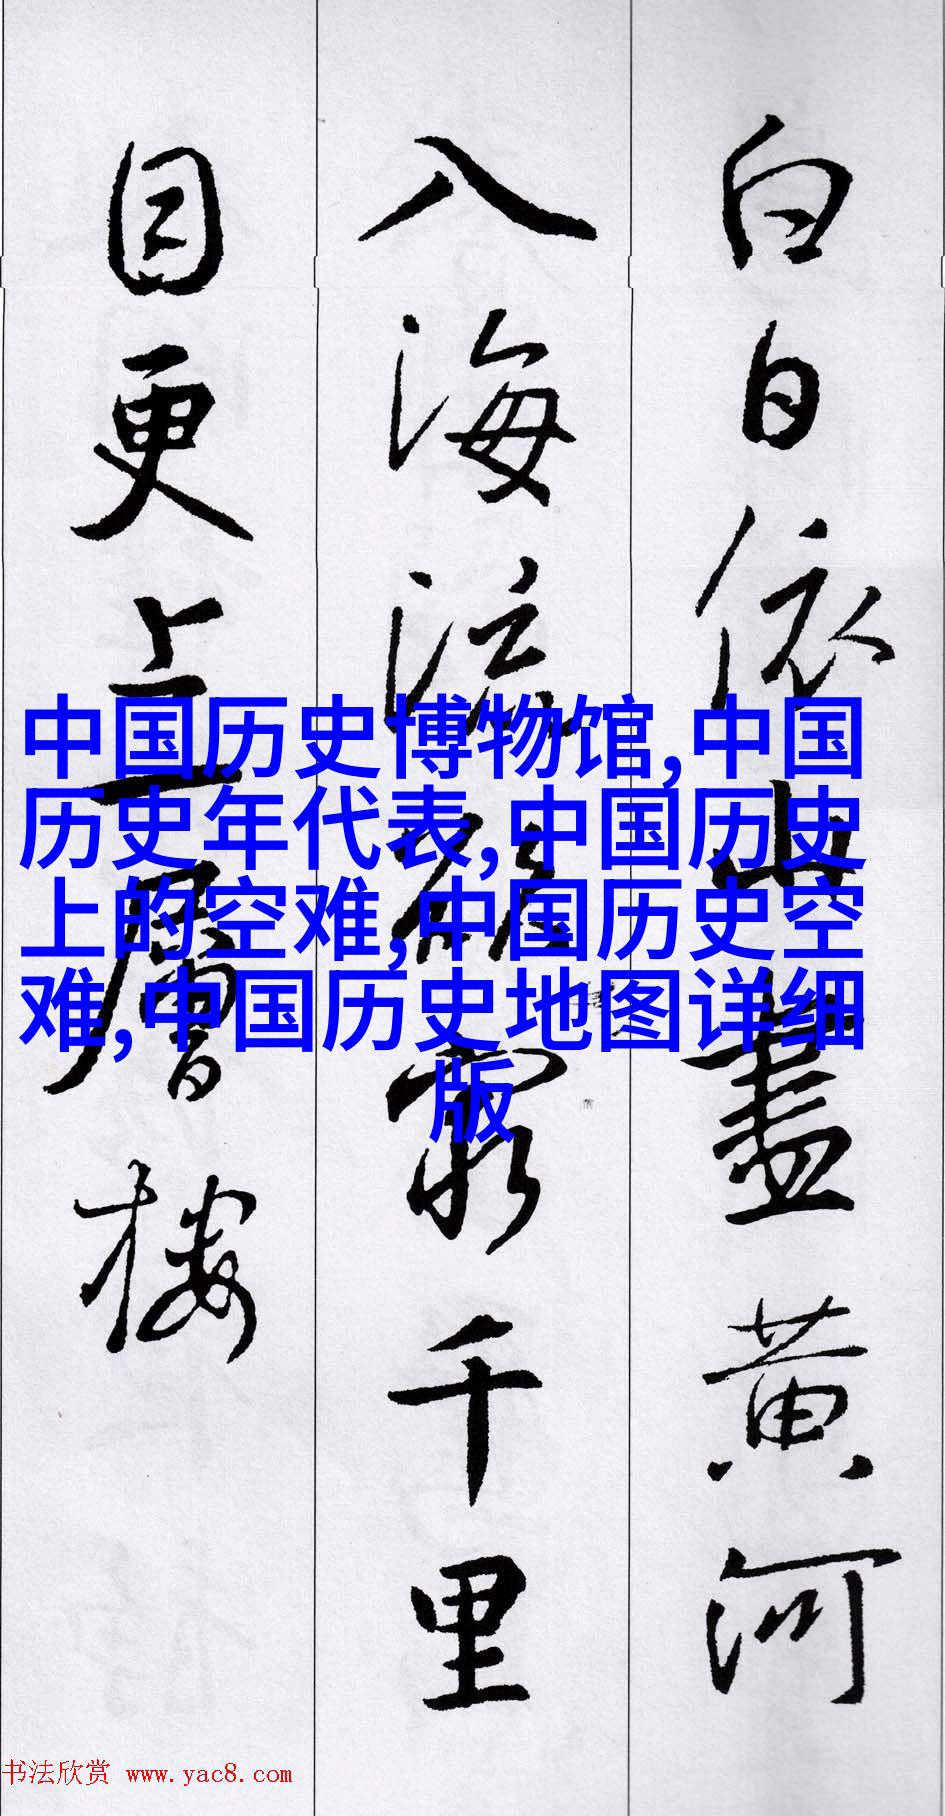 白日依山盡黄河
入海流欲窮千里
目更上一層樓
中国历史博物馆,中国
历史年代表,中国历史
上的空难,中国历史空
难,中国历史地图详细
版
书法欣赏 www.yac8.com